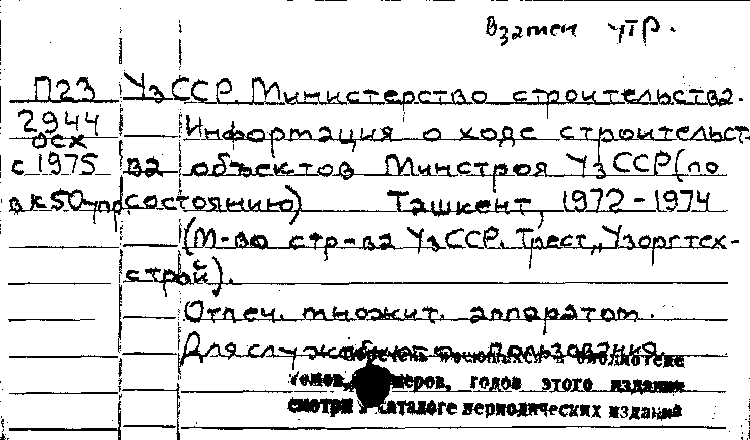 Взамен утр.
П23 УзССР. Министерство строительства.
2944 Информация о ходе строительст-
осх
с 1975 ва объектов Минстроя УзССР (по
в к50упр состоянию) Ташкент, 1972-1974
(М-во стр-ва УзССР. Трест „Узоргтех-
строй).
Отпеч. множит. аппаратом.
Для служебного пользования.
Перечень имеющихся в библиотеке
томов, номеров, годов этого издания
смотри в каталоге периодических изданий